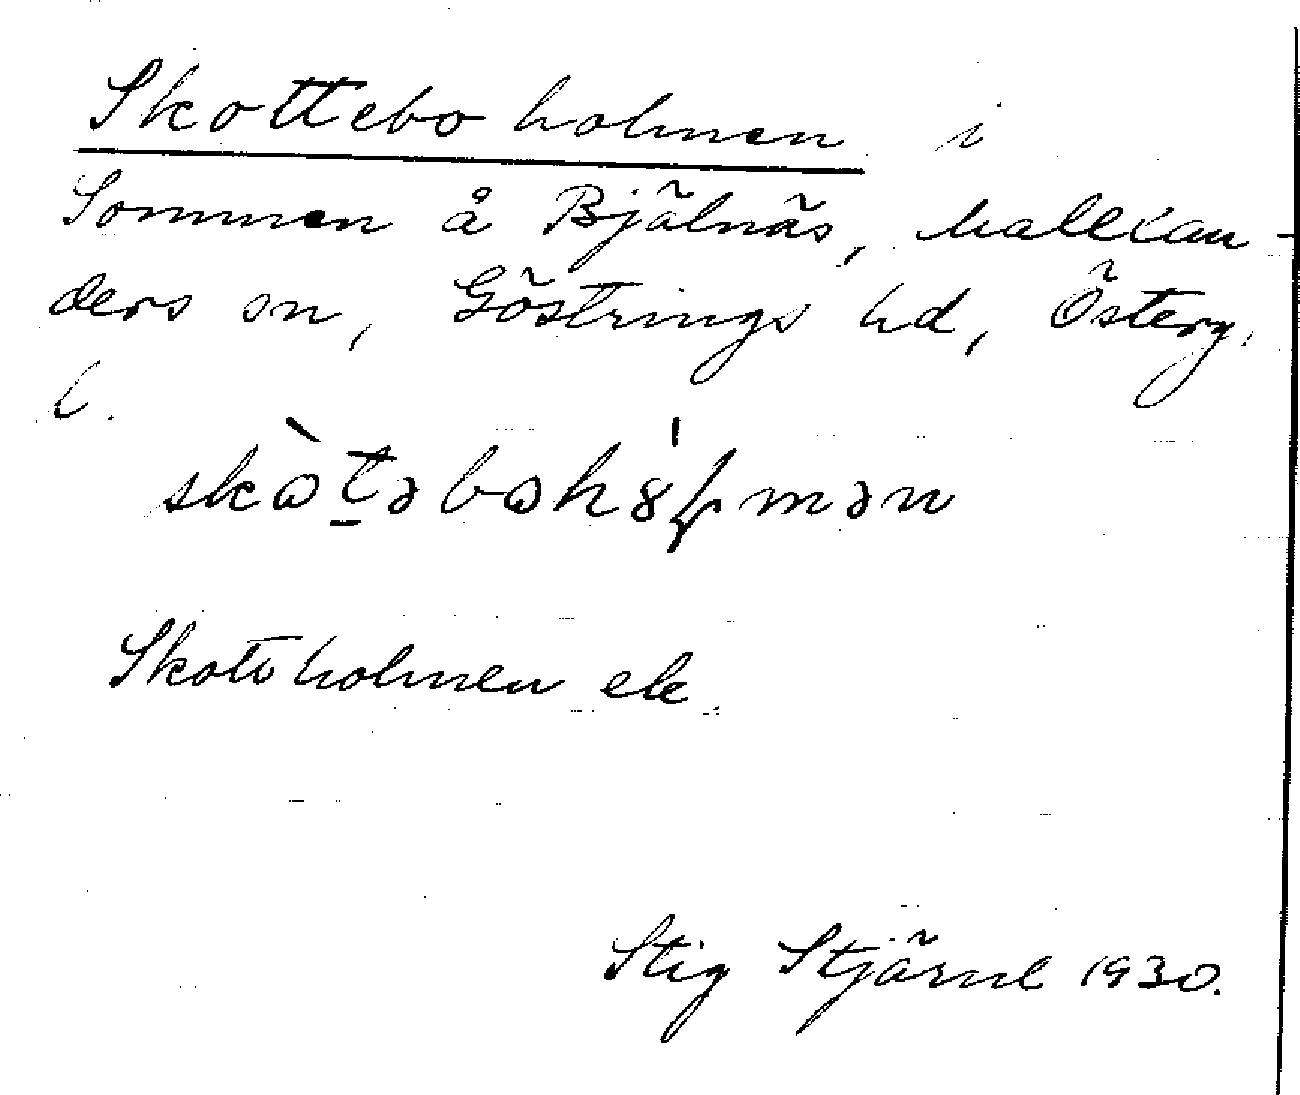 Skottebo holmen i
Sommen å Bjälnäs, Malexan-
ders sn, Göstrings hd, Österg.
l.
skòt̲əbɷhȣ́ɭmən
Skotteholmen ek.
Stig Stjärne 1930.